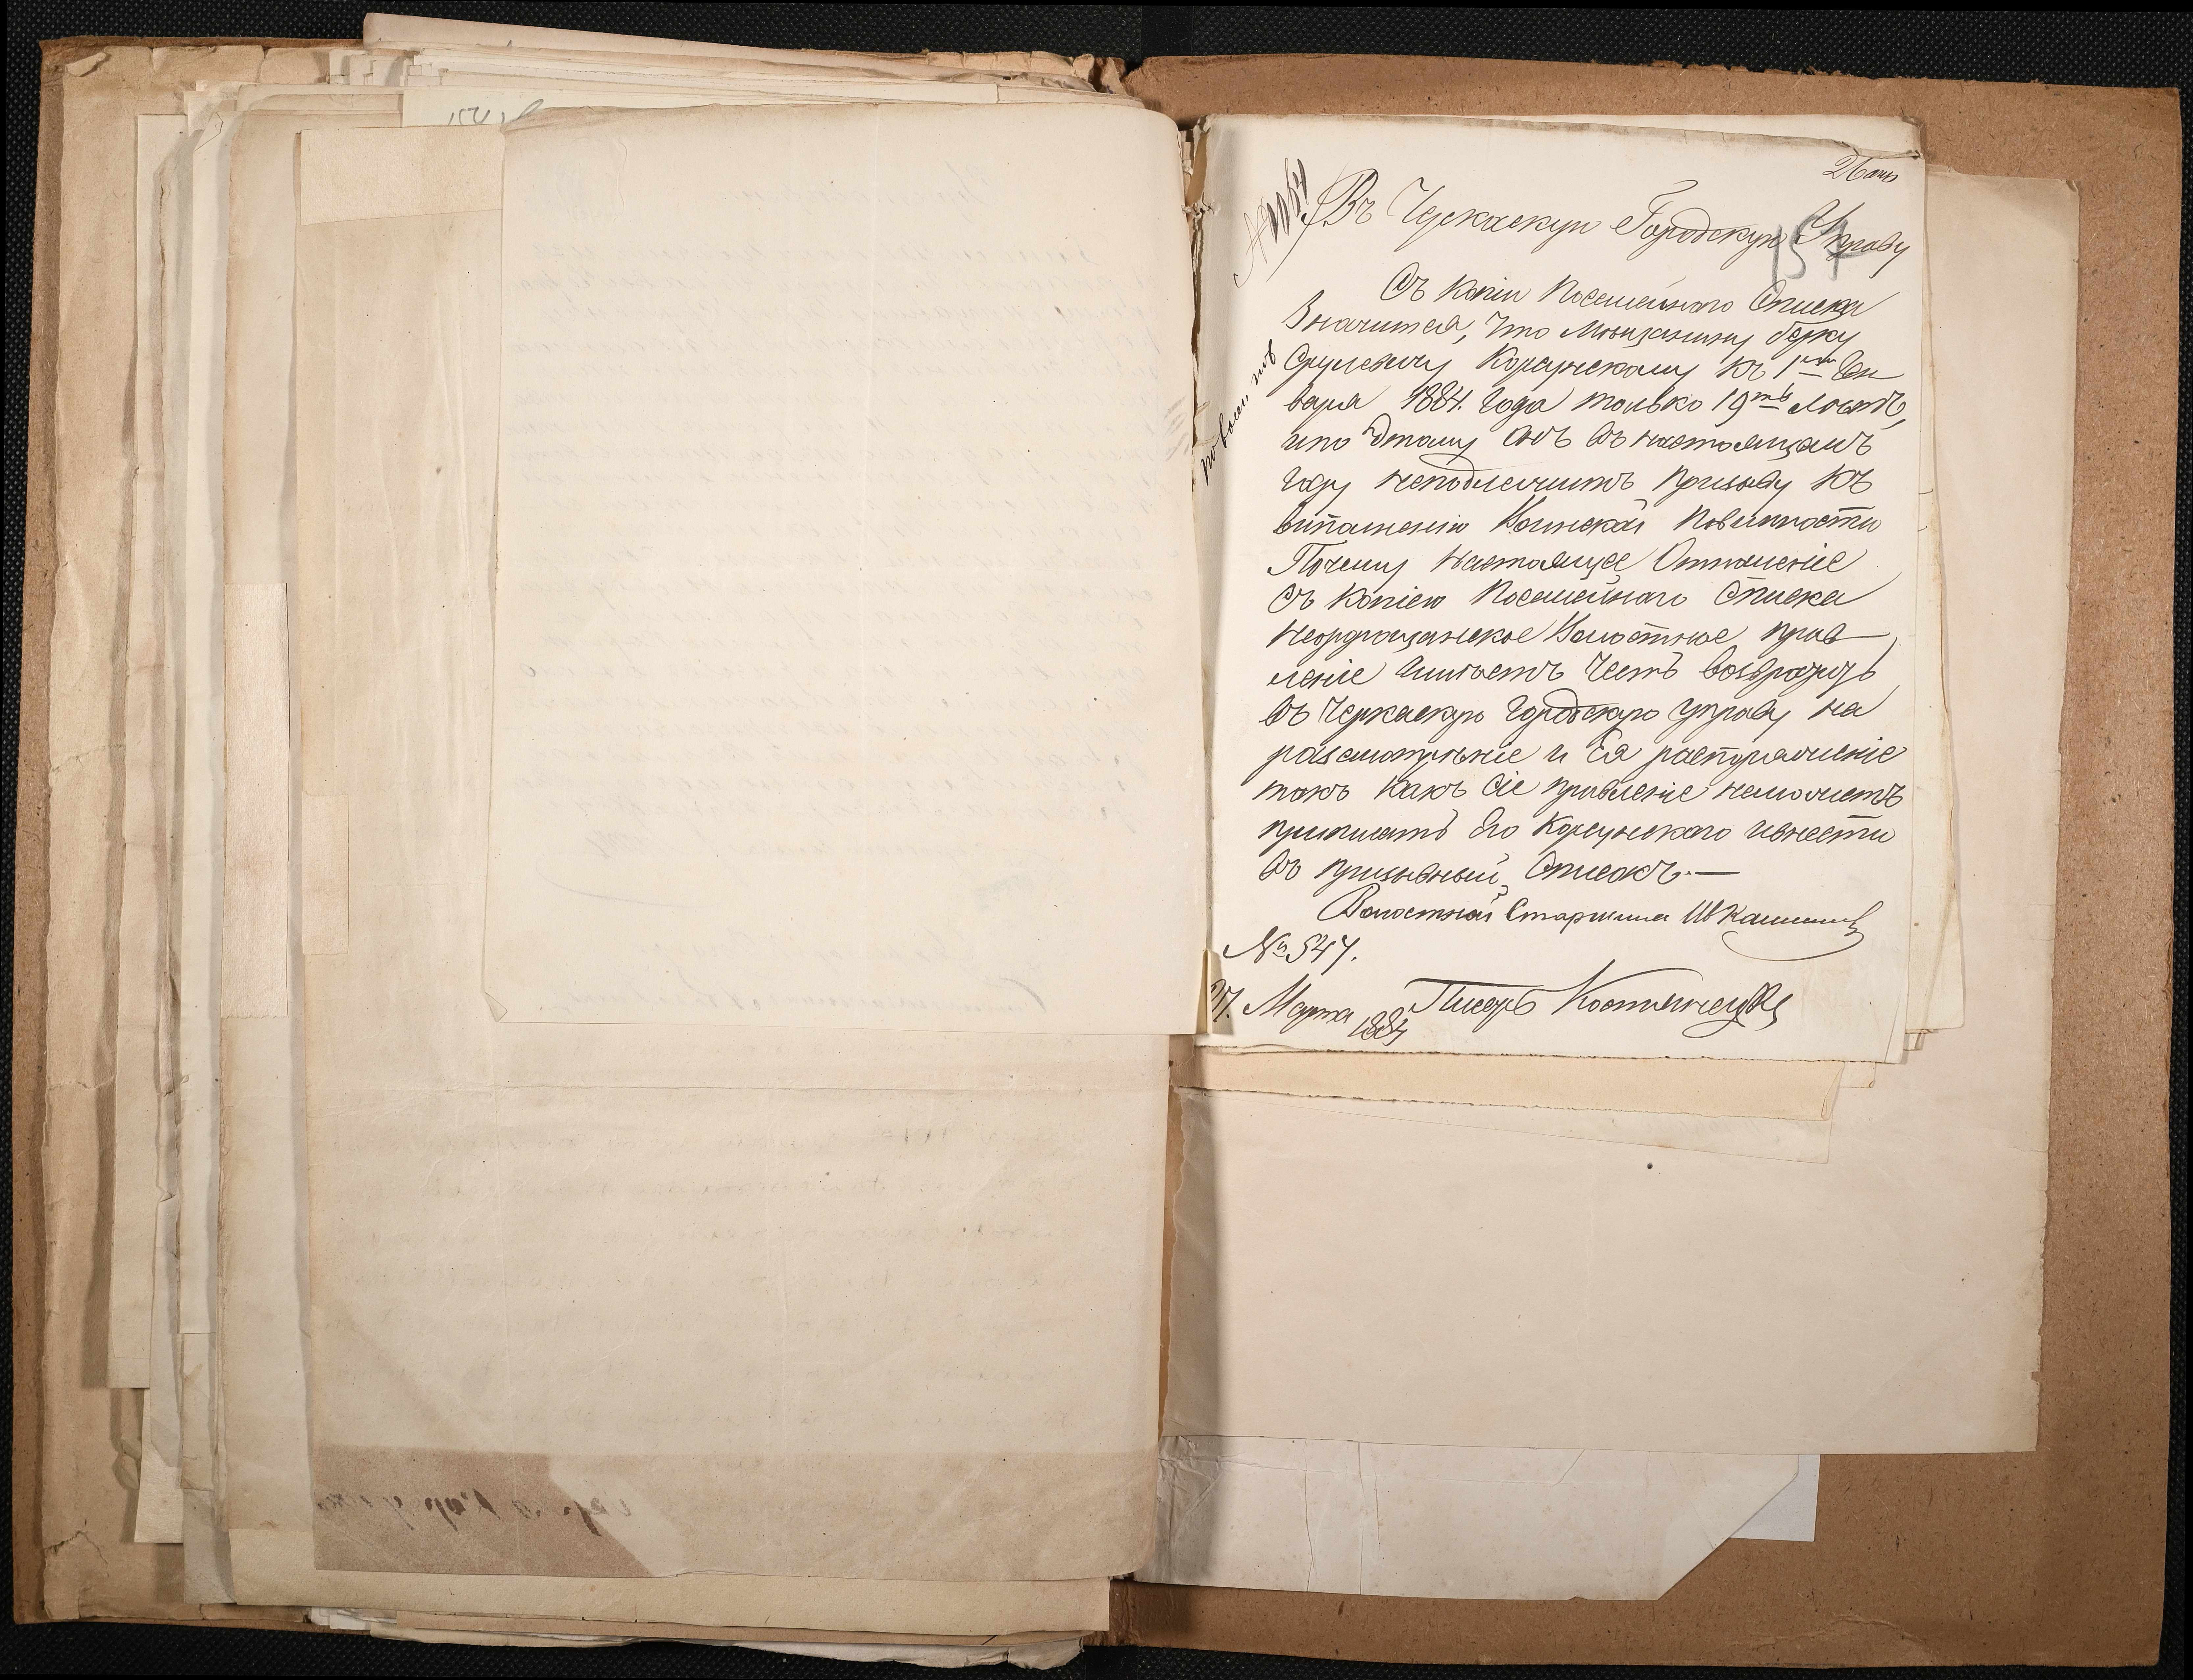 26 апр
Въ Черкаскую Городскую Управу
157
Съ копіи Посемейнаго Списка
Значится, что Мѣщанину Берку
Срулевичу Корсунскому къ 1му Ген
варя 1884. Года только 19ть лѣтъ,
и по этому Онъ въ настоящемъ
году неподлежитъ призыву къ
выполненію Воинской Повинности
Почему Настоящее Отношеніе
Съ Копіею Посемейнаго Списка
Волостное прав
леніе имѣетъ Честь возвратить
въ Черкаскую Городскую управу на
разсмотрѣніе и Ея распоряженіе
такъ какъ Сіе правленіе неможетъ
приписать Его Корсунскаго и внести
въ призывный Списокъ.—
Волостной Старшина
№ 547.
Марта 1884
Писарь Костянецкій